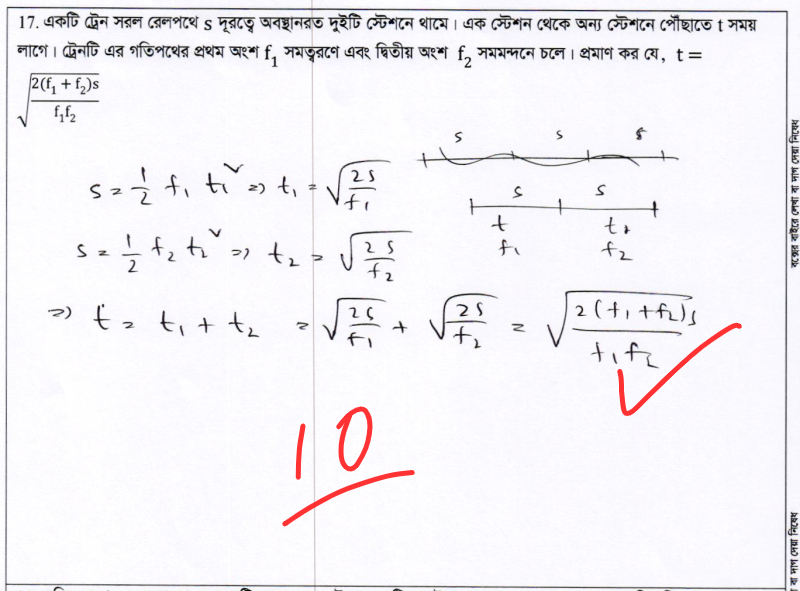 17. একটি ট্রেন সরল রেলপথে s দূরত্বে অবস্থানরত দুইটি স্টেশনে থামে। এক স্টেশন থেকে অন্য স্টেশনে পৌঁছাতে t সময়
লাগে। ট্রেনটি এর গতিপথের প্রথম অংশ f₁ সমত্বরণে এবং দ্বিতীয় অংশ f₂ সমমন্দনে চলে। প্রমাণ কর যে, t =
√(2(f₁ + f₂)s / f₁f₂)
s s s
s = 1/2 f₁ t₁² ⇒ t₁ = √(2s/f₁)
s s
t t₂
f₁ f₂
s = 1/2 f₂ t₂² ⇒ t₂ = √(2s/f₂)
⇒ t = t₁ + t₂ = √(2s/f₁) + √(2s/f₂) = √(2(f₁+f₂)s / f₁f₂)
10
বক্সের বাইরে লেখা বা দাগ দেয়া নিষেধ
বা দাগ দেয়া নিষেধ